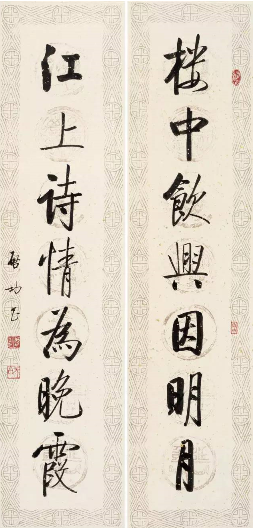 楼中飲興因明月
江上诗情為晚霞
啟功书